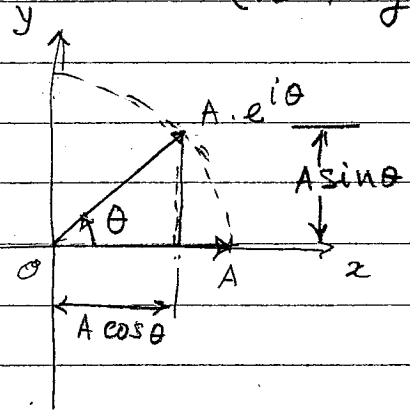 y
A · e^{iθ}
A sin θ
θ
O
A
x
A cos θ